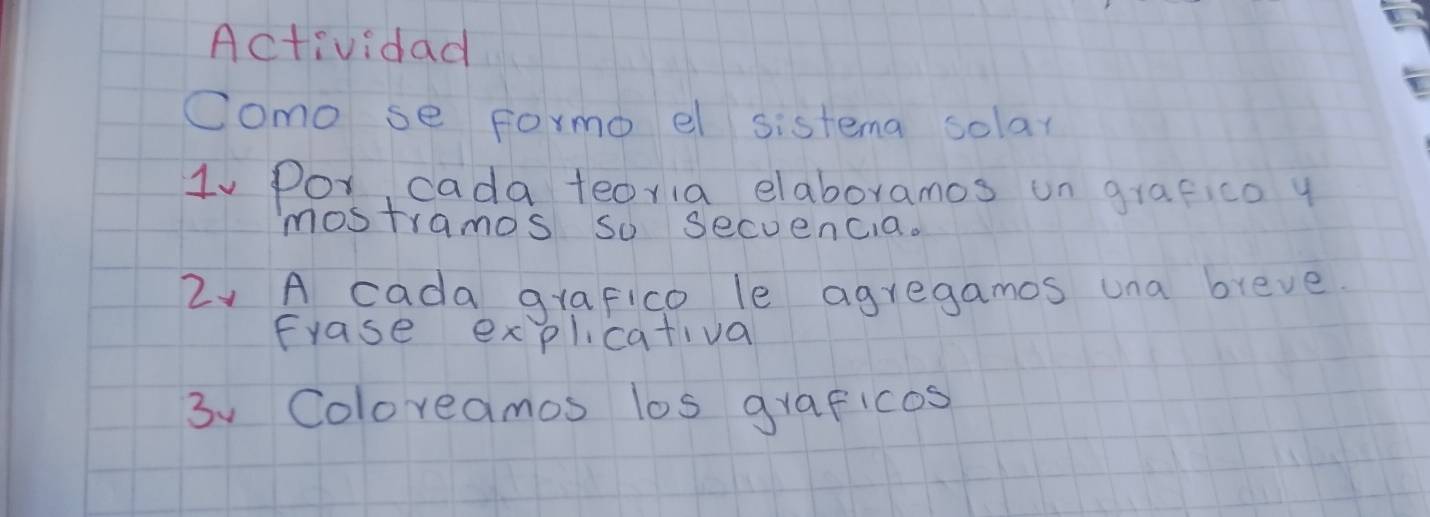 Actividad
Como se formo el sistema solar
1. Por cada teoria elaboramos un grafico y
mostramos su secuencia.
2. A cada grafico le agregamos una breve.
Frase explicativa
3. Coloreamos los graficos